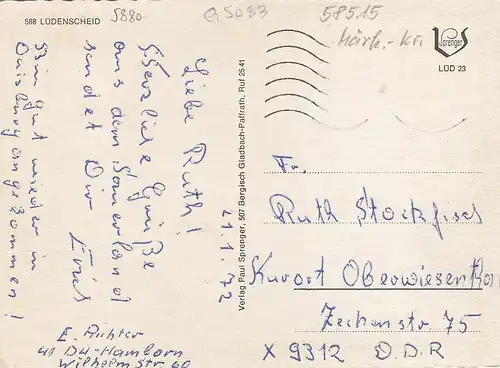 588 LÜDENSCHEID
5880
G5083
58515
Märk.-Kr.
Sprenger
LÜD 23
Liebe Ruth!
Herzliche Grüße
aus dem Sauerland
sendet Dir
Erich
Bin gut wieder in
Duisburg angekommen!
21.1.72
E. Richter
41 DU-Hamborn
Wilhelmstr 60
Verlag Paul Sprenger, 507 Bergisch Gladbach-Paffrath, Ruf 2541
Fr.
Ruth Stockfisch
Kurort Oberwiesenthal
Zechenstr. 75
X 9312 D.D.R